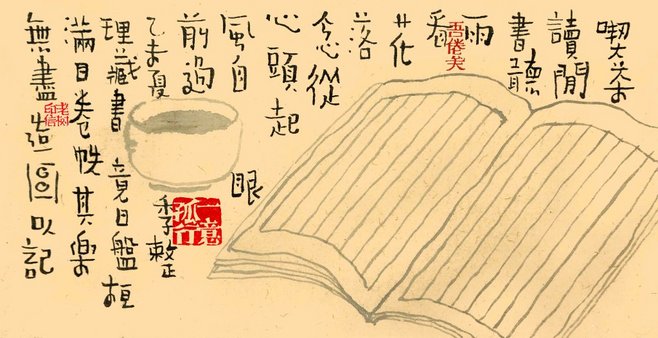 喫茶
讀閒
書聽
雨
看
花
落
念從
心頭起
風自眼
前過
乙未夏季整
理藏書竟日盤桓
滿目卷帙其樂
無盡造圖以記
吾倦矣
一意孤行
老树印信